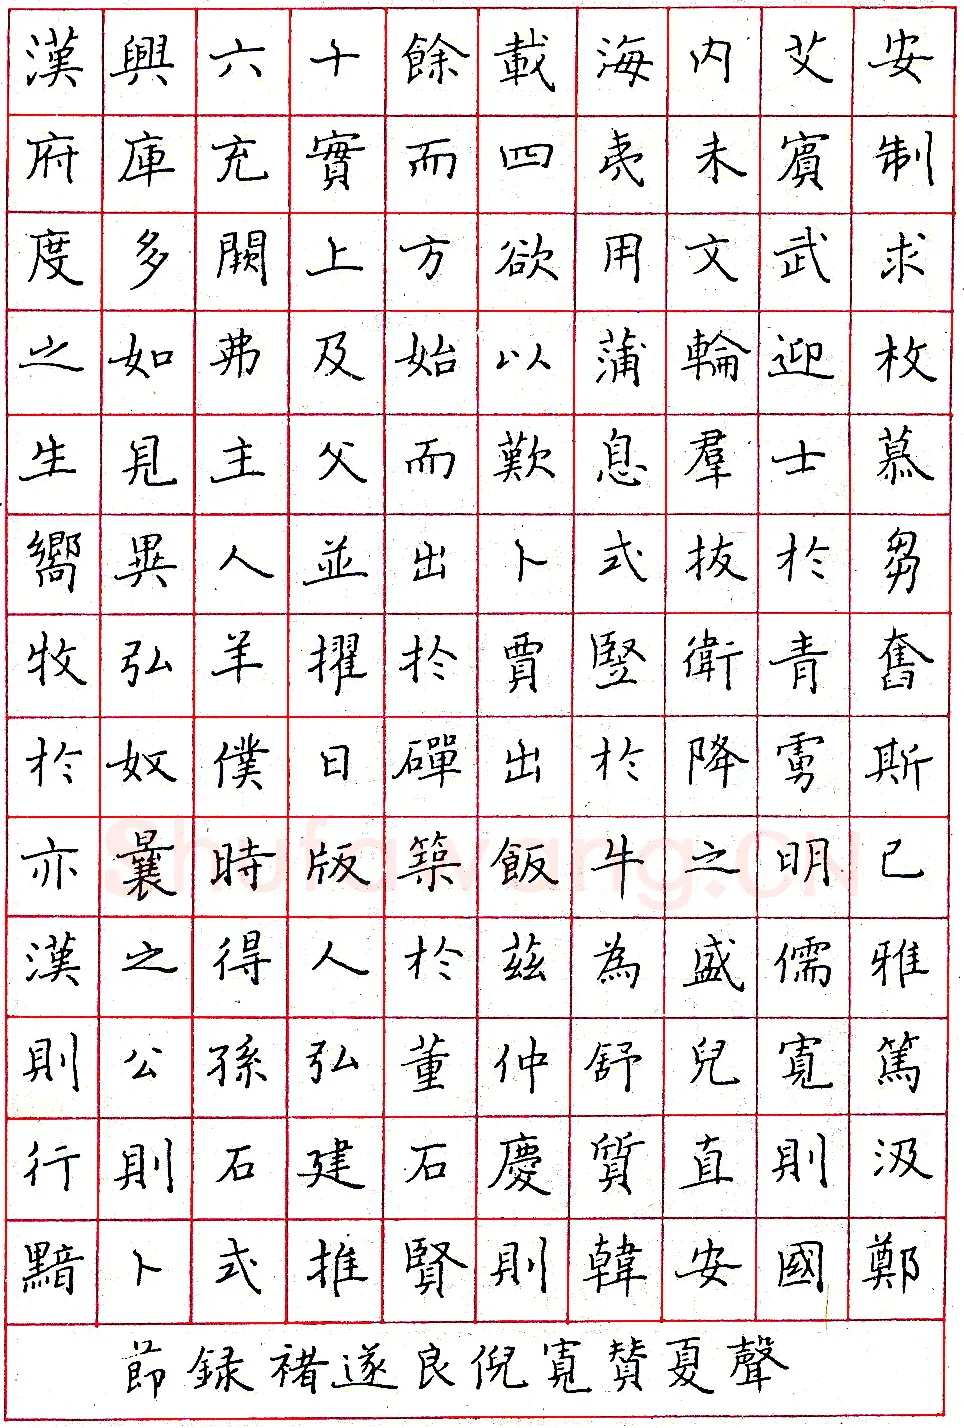 漢興六十餘載海内艾安
府庫充實而四夷未賓制
度多闕上方欲用文武求
之如弗及始以蒲輪迎枚
生見主父而歎息羣士慕
嚮異人並出卜式拔於芻
牧弘羊擢於賈豎衛青奮
於奴僕日磾出於降虜斯
亦曩時版築飯牛之明已
漢之得人於茲為盛儒雅
則公孫弘董仲舒兒寬篤
行則石建石慶質直則汲
黯卜式推賢則韓安國鄭
節録褚遂良倪寬賛夏聲
Shufawang.CN